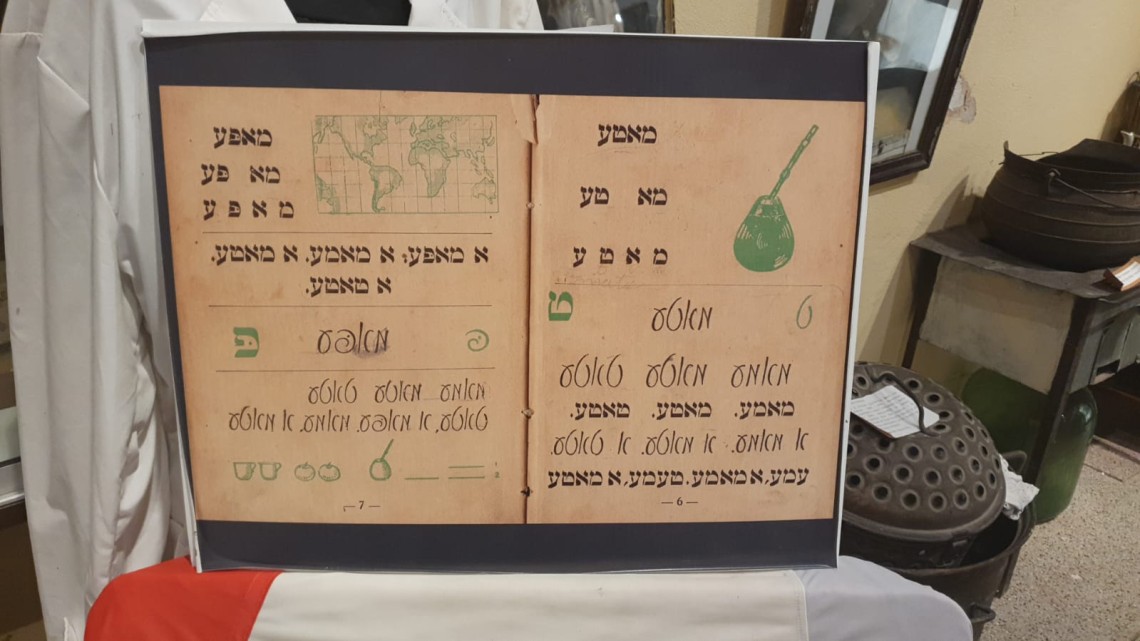 מאטע
מא טע
מ א ט ע
ט מאטע ט
מאמע מאטע טאטע
מאמע. מאטע. טאטע.
א מאמע. א מאטע. א טאטע.
עמע, א מאמע. טעמע, א מאטע
— 6 —
מאפע
מא פע
מ א פ ע
א מאפע; א מאמע. א מאטע.
א טאטע.
פ מאפע פ
מאמע מאטע טאטע
טאטע, א מאפע. מאמע, א מאטע
— 7 —